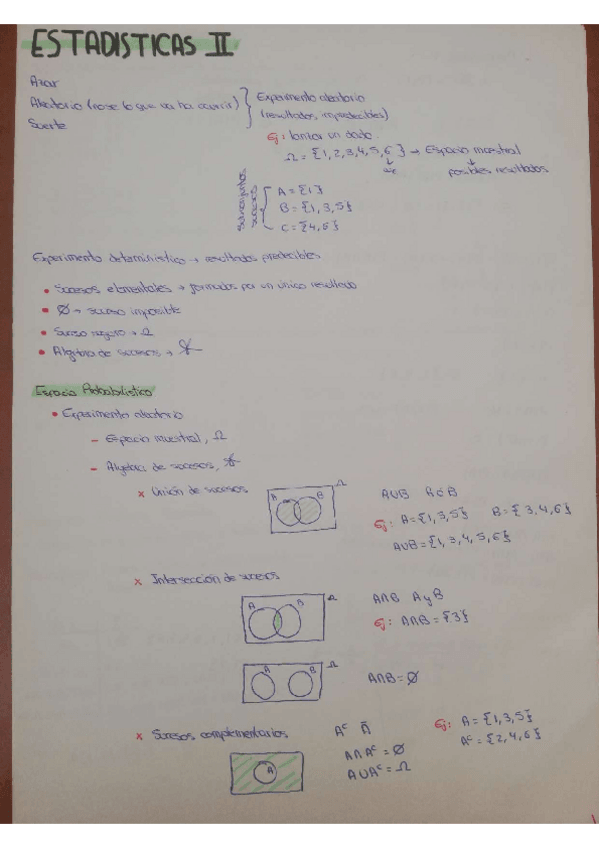 ESTADISTICAS II
Azar
Aleatorio (no se lo que va ha ocurrir)
Suerte
Experimento aleatorio
(resultados impredecibles)
Ej: lanzar un dado.
Ω = {1,2,3,4,5,6} → Espacio muestral
posibles resultados
Subconjuntos
sucesos
A = {1}
B = {1,3,5}
C = {4,6}
Experimento determinístico → resultados predecibles
• Sucesos elementales → formados por un único resultado
• Ø → suceso imposible
• Suceso seguro → Ω
• Algebra de sucesos →
Espacio Probabilístico
• Experimento aleatorio
- Espacio muestral, Ω
- Algebra de sucesos,
x Unión de sucesos
A B Ω
A∪B A o B
Ej: A = {1,3,5} B = {3,4,6}
A∪B = {1,3,4,5,6}
x Intersección de sucesos
A B Ω
A∩B A y B
Ej: A∩B = {3}
A B Ω
A∩B = Ø
x Sucesos complementarios
A
Aᶜ Ā
A∩Aᶜ = Ø
A∪Aᶜ = Ω
Ej: A = {1,3,5}
Aᶜ = {2,4,6}